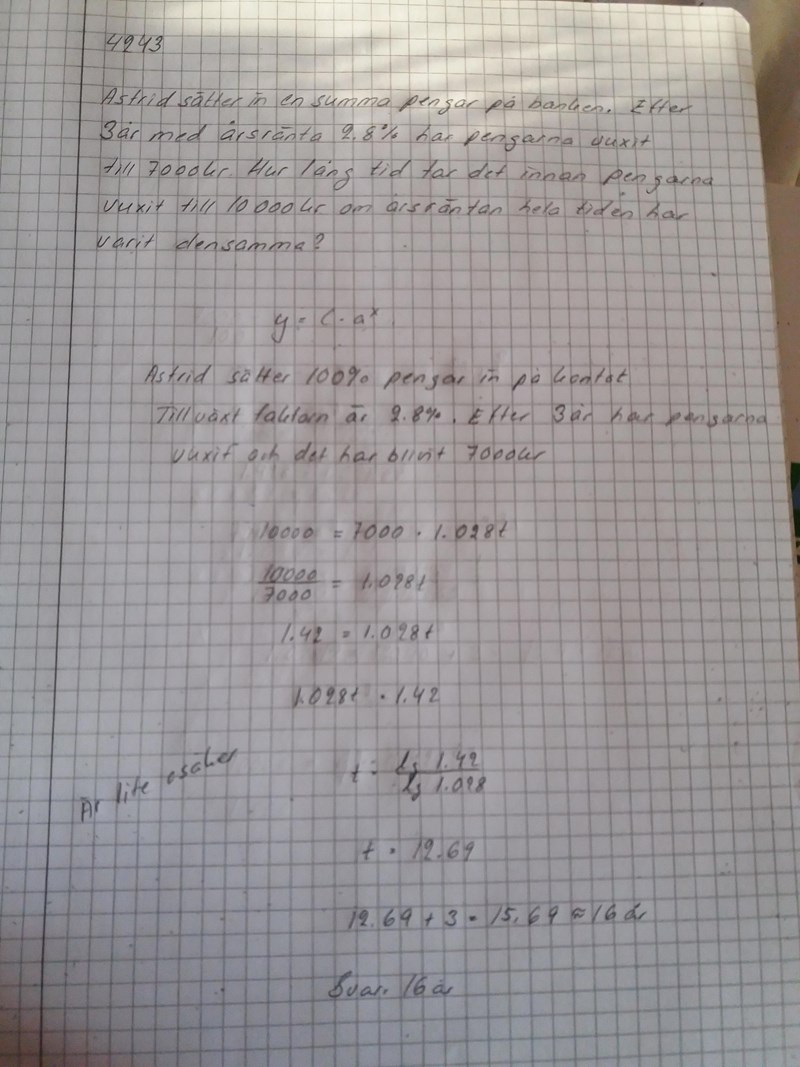 4243
Astrid sätter in en summa pengar på banken. Efter
3år med årsränta 2.8% har pengarna vuxit
till 7000kr. Hur lång tid tar det innan pengarna
vuxit till 10000kr om årsräntan hela tiden har
varit densamma?
y = C · a^x
Astrid sätter 100% pengar in på kontot
Tillväxt faktorn är 2.8%. Efter 3år har pengarna
vuxit och det har blivit 7000kr
10000 = 7000 · 1.028t
10000/7000 = 1.028t
1.42 = 1.028t
1.028t = 1.42
Är lite osäker
t = lg 1.42 / lg 1.028
t = 12.69
12.69 + 3 = 15,69 ≈ 16 år
Svar. 16 år